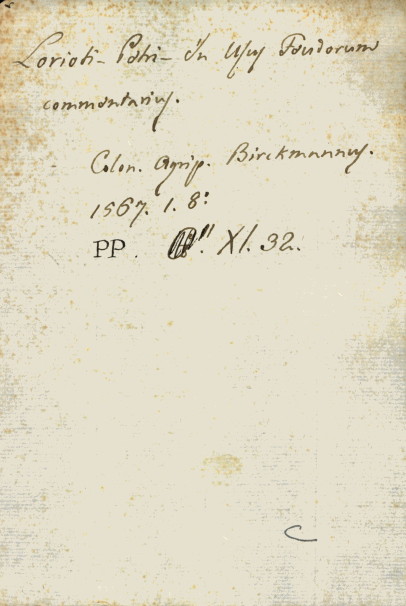 Lorioti - Petri - In Usus Feudorum
commentarius.
Colon. Agrip. Birckmannus.
1567. 1. 8:
PP. XI. 32.
C